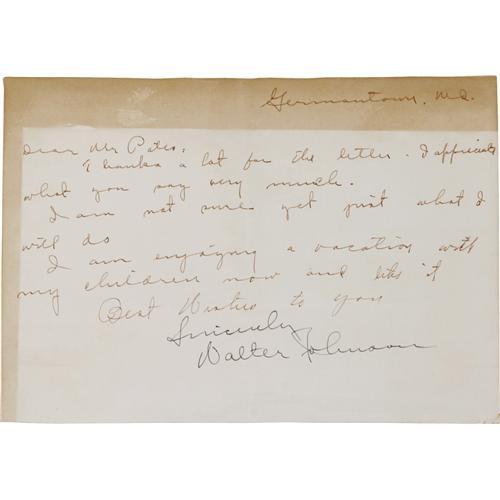 Germantown. Md.
Dear Mr Pates,
Thanks a lot for the letter. I appreciate
what you say very much.
I am not sure yet just what I
will do
I am enjoying a vacation with
my children now and like it
Best Wishes to you
Sincerely
Walter Johnson